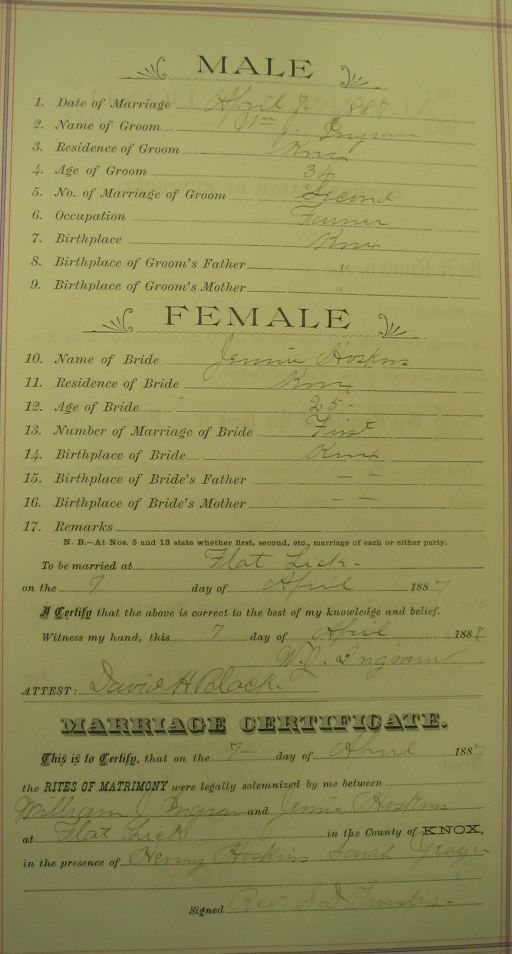 MALE
1. Date of Marriage April 7 1887
2. Name of Groom Wm J. Ingram
3. Residence of Groom Knox
4. Age of Groom 34
5. No. of Marriage of Groom Second
6. Occupation Farmer
7. Birthplace Knox
8. Birthplace of Groom's Father "
9. Birthplace of Groom's Mother "
FEMALE
10. Name of Bride Jennie Hoskins
11. Residence of Bride Knox
12. Age of Bride 25-
13. Number of Marriage of Bride First
14. Birthplace of Bride Knox
15. Birthplace of Bride's Father — —
16. Birthplace of Bride's Mother — —
17. Remarks
N. B.—At Nos. 5 and 13 state whether first, second, etc., marriage of each or either party.
To be married at Flat Lick-
on the 7 day of April 1887
I Certify that the above is correct to the best of my knowledge and belief.
Witness my hand, this 7 day of April 1887
W. J. Ingram
ATTEST: David H Black-
MARRIAGE CERTIFICATE.
This is to Certify, that on the 7- day of April 1887
the RITES OF MATRIMONY were legally solemnized by me between
William J Ingram and Jennie Hoskins
at Flat Lick in the County of KNOX,
in the presence of Henry Hoskins Sarah Yeager
Signed Rev. S. D.